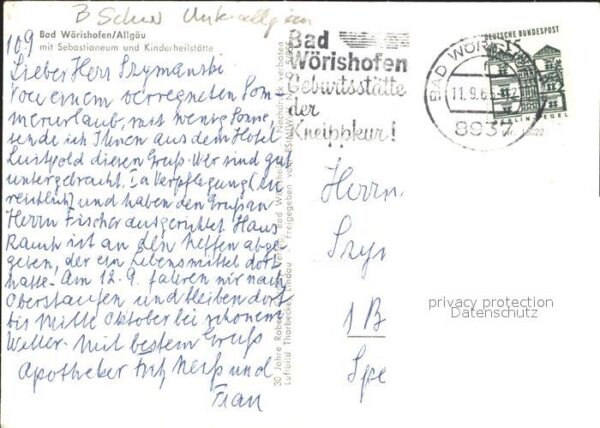 Bad Wörishofen/Allgäu
mit Sebastianeum und Kinderheilstätte
10.9
Lieber Herr Szymanski
Von einem verregneten Som
merurlaub, mit wenig Sonne,
sende ich Ihnen aus dem Hotel
Luitpold diesen Gruß. Wir sind gut
untergebracht. Ia Verpflegung
reichlich) und haben den Gruß an
Herrn Fischer ausgerichtet Haus
Rauch ist an den Neffen abge
geben, der ein Lebensmittel dort
hatte. Am 12.9. fahren wir nach
Oberstaufen und bleiben dort
bis Mitte Oktober bei schönem
Wetter. Mit bestem Gruß
Apotheker Fritz und
Frau
Bad
Wörishofen
Geburtsstätte
der
Kneippkur!
BAD WÖRIS
11.9.6
8939
DEUTSCHE BUNDESPOST
BERLIN-TEGEL
Herrn
Szy
1 B
Spe
privacy protection
Datenschutz